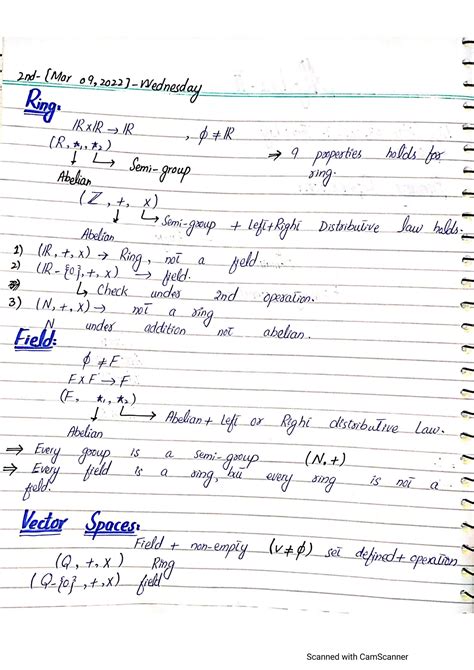 2nd-[Mar 09,2022]-Wednesday
Ring:
IR×IR → IR , ϕ ≠ IR
(R, *₁, *₂) ⇒ 9 properties holds for
↓ ↳ Semi-group ring.
Abelian
(Z, +, ×)
↓ ↳ Semi-group + Left+Right Distributive law holds.
Abelian
1) (IR, +, ×) → Ring, not a field.
2) (IR-{0}, +, ×) → field.
↳ Check under 2nd operation.
3) (N, +, ×) → not a ring
N under addition not abelian.
Field:
ϕ ≠ F
F×F → F
(F, *₁, *₂)
↓ ↳ Abelian + Left or Right distributive Law.
Abelian
⇒ Every group is a semi-group (N, +)
⇒ Every field is a ring, but every ring is not a
field.
Vector Spaces:
Field + non-empty (V≠ϕ) set defined + operation
(Q, +, ×) Ring
(Q-{0}, +, ×) field
Scanned with CamScanner